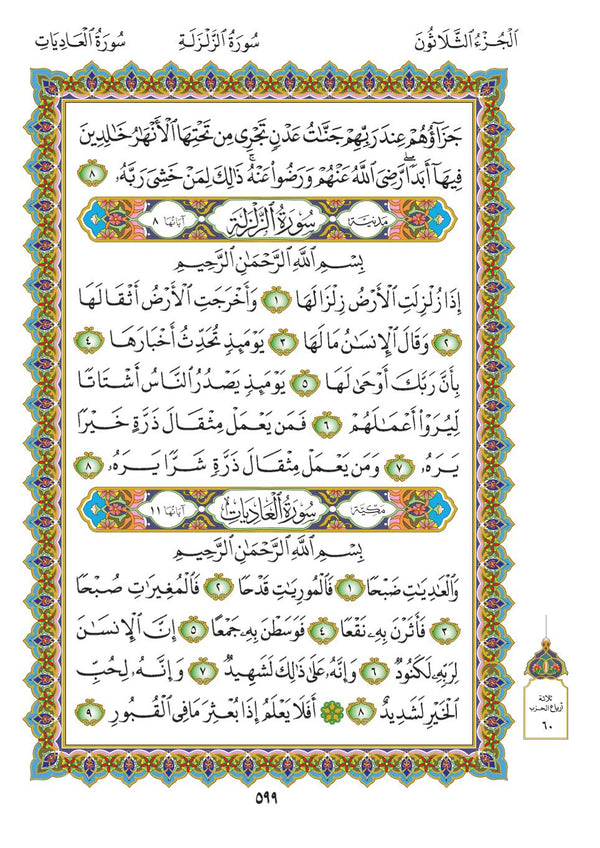 الجزء الثلاثون سورة الزلزلة سورة العاديات
جَزَآؤُهُمْ عِندَ رَبِّهِمْ جَنَّٰتُ عَدْنٍ تَجْرِى مِن تَحْتِهَا ٱلْأَنْهَٰرُ خَٰلِدِينَ
فِيهَآ أَبَدًا ۖ رَّضِىَ ٱللَّهُ عَنْهُمْ وَرَضُوا۟ عَنْهُ ۚ ذَٰلِكَ لِمَنْ خَشِىَ رَبَّهُۥ ٨
مدنية سورة الزلزلة آياتها ٨
بِسْمِ ٱللَّهِ ٱلرَّحْمَٰنِ ٱلرَّحِيمِ
إِذَا زُلْزِلَتِ ٱلْأَرْضُ زِلْزَالَهَا ١ وَأَخْرَجَتِ ٱلْأَرْضُ أَثْقَالَهَا
٢ وَقَالَ ٱلْإِنسَٰنُ مَا لَهَا ٣ يَوْمَئِذٍ تُحَدِّثُ أَخْبَارَهَا ٤
بِأَنَّ رَبَّكَ أَوْحَىٰ لَهَا ٥ يَوْمَئِذٍ يَصْدُرُ ٱلنَّاسُ أَشْتَاتًا
لِّيُرَوْا۟ أَعْمَٰلَهُمْ ٦ فَمَن يَعْمَلْ مِثْقَالَ ذَرَّةٍ خَيْرًا
يَرَهُۥ ٧ وَمَن يَعْمَلْ مِثْقَالَ ذَرَّةٍ شَرًّا يَرَهُۥ ٨
مكية سورة العاديات آياتها ١١
بِسْمِ ٱللَّهِ ٱلرَّحْمَٰنِ ٱلرَّحِيمِ
وَٱلْعَٰدِيَٰتِ ضَبْحًا ١ فَٱلْمُورِيَٰتِ قَدْحًا ٢ فَٱلْمُغِيرَٰتِ صُبْحًا
٣ فَأَثَرْنَ بِهِۦ نَقْعًا ٤ فَوَسَطْنَ بِهِۦ جَمْعًا ٥ إِنَّ ٱلْإِنسَٰنَ
لِرَبِّهِۦ لَكَنُودٌ ٦ وَإِنَّهُۥ عَلَىٰ ذَٰلِكَ لَشَهِيدٌ ٧ وَإِنَّهُۥ لِحُبِّ
ٱلْخَيْرِ لَشَدِيدٌ ٨ أَفَلَا يَعْلَمُ إِذَا بُعْثِرَ مَا فِى ٱلْقُبُورِ ٩
ثلاثة
أرباع الحزب
٦٠
٥٩٩